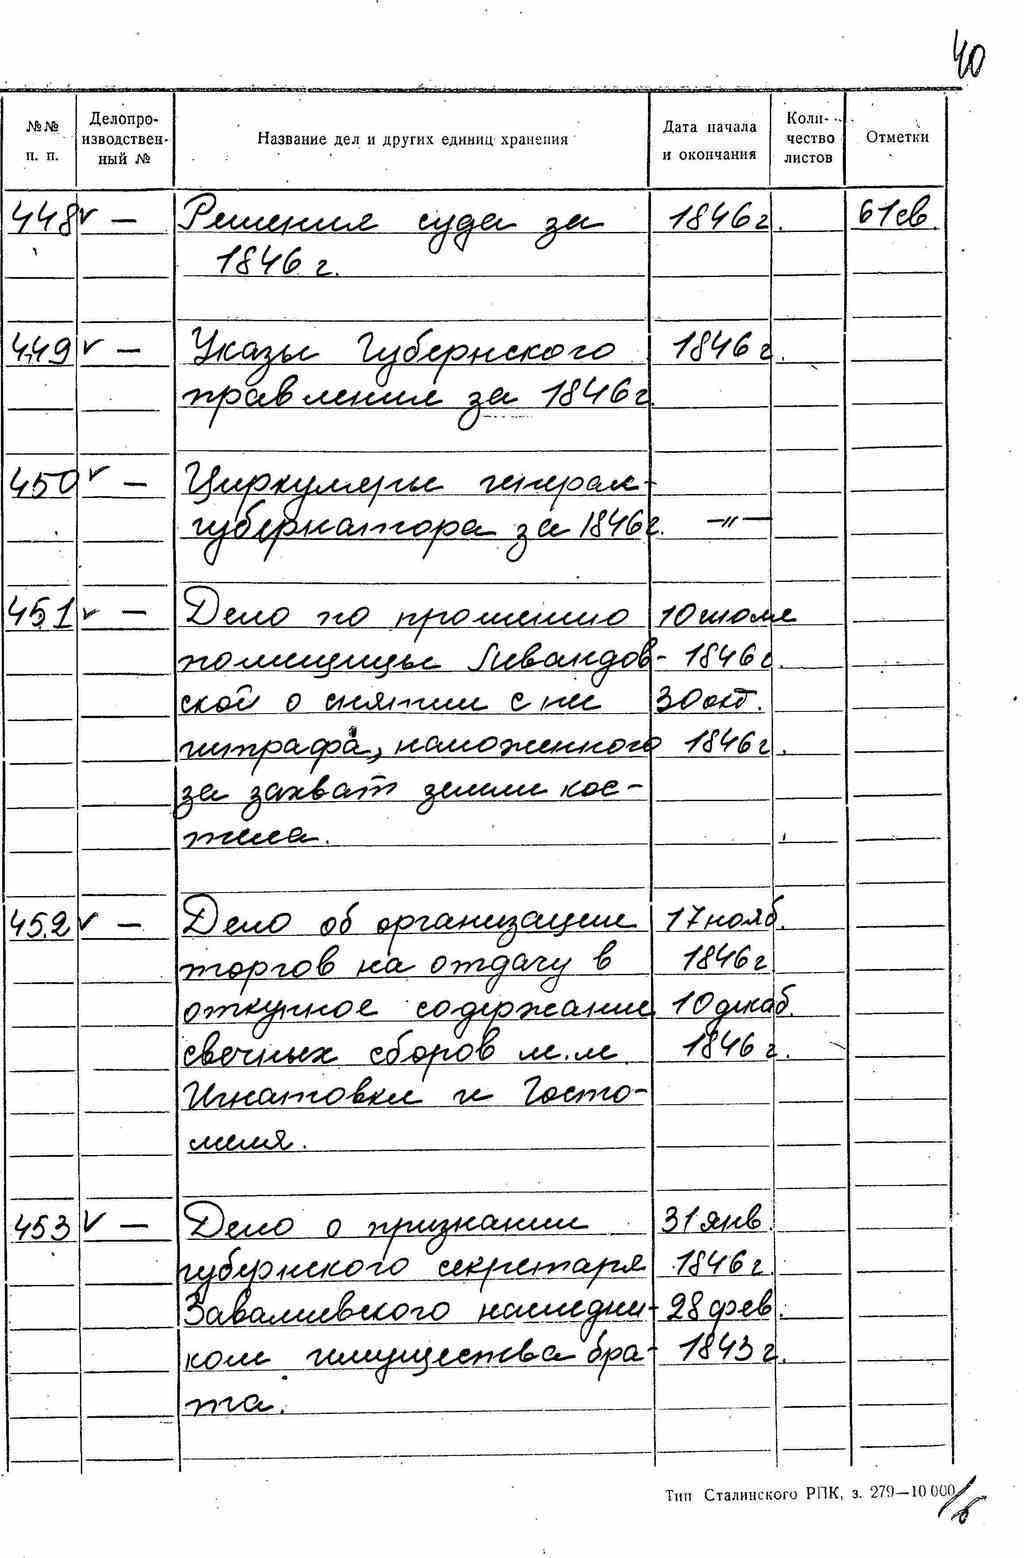 40
№№ п. п.
Делопро-
изводствен-
ный №
Название дел и других единиц хранения
Дата начала
и окончания
Коли-
чество
листов
Отметки
448 v — Решения суда за 1846 г. 61 св.
1846 г.
449 v — Указы Губернского 1846 г.
правления за 1846 г.
450 v — Циркуляры генерал-
губернатора за 1846 г. —"—
451 v — Дело по прошению 10 июля
помещицы Левандов- 1846 г.
ской о снятии с нее 30 окт.
штрафа, наложенного 1846 г.
за захват земли кос-
тела.
452 v — Дело об организации 17 нояб.
торгов на отдачу в 1846 г.
откупное содержание 10 декаб.
свечных сборов м.м 1846 г.
Игнатовки и Госто-
меля.
453 v — Дело о признании 31 янв.
губернского секретаря 1846 г.
Завалиевского наследни- 28 фев.
ком имущества бра- 1843 г.
та.
Тип Сталинского РПК, з. 279—10 000